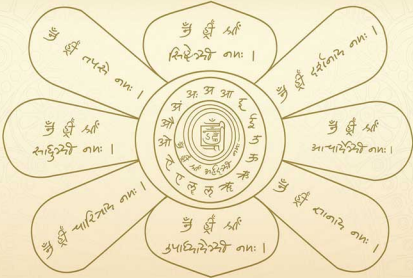 ॐ ह्रीँ श्रीँ
सिद्धेभ्यो नमः ।
ॐ ह्रीँ दर्शनाय नमः ।
ॐ ह्रीँ श्रीँ
आचार्येभ्यो नमः ।
ॐ ह्रीँ ज्ञानाय नमः ।
ॐ ह्रीँ श्रीँ
उपाध्यायेभ्यो नमः ।
ॐ ह्रीँ चारित्राय नमः ।
ॐ ह्रीँ श्रीँ
साधुभ्यो नमः ।
ॐ ह्रीँ तपसे नमः ।
अ आ इ ई उ ऊ ऋ ॠ ऌ ॡ ए ऐ ओ औ अं अः